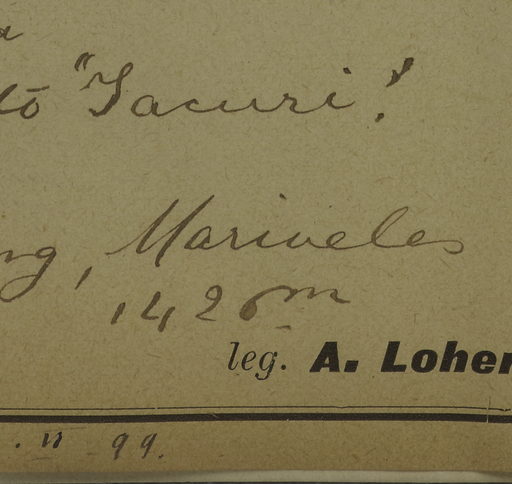 to "Tacuri!
ng, Mariveles
1426 m
leg. A. Loher
99.